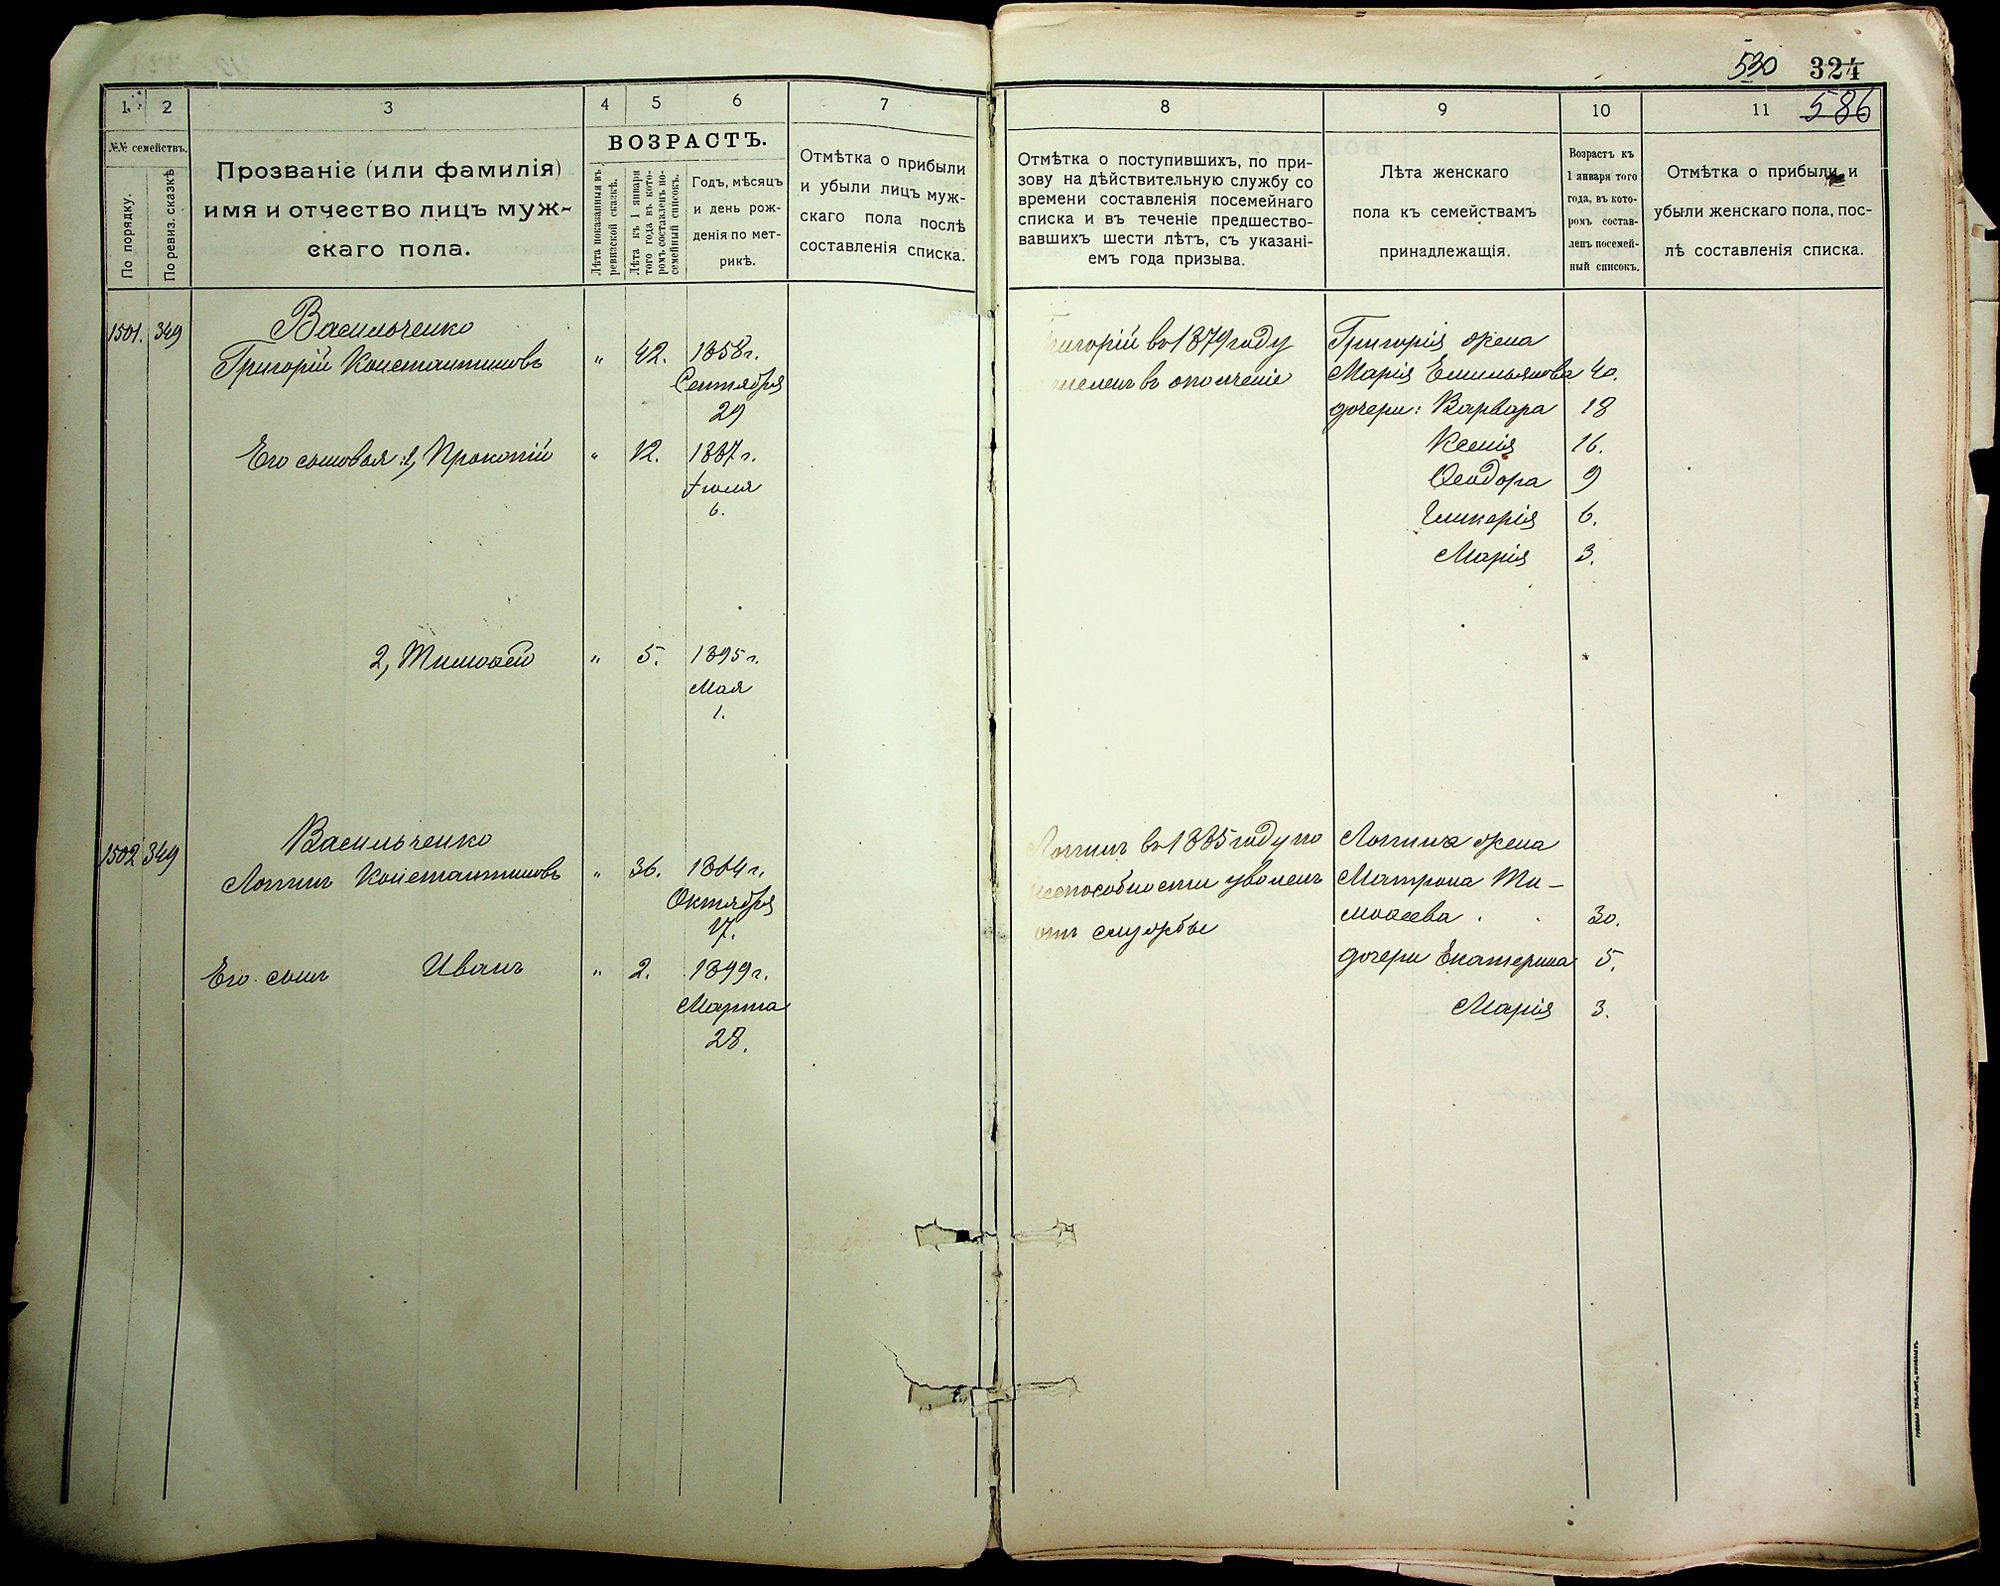 530 324
586
1 2 3 4 5 6 7
№№ семействъ.
По порядку.
По ревиз. сказкѣ
Прозваніе (или фамилія)
имя и отчество лицъ муж-
скаго пола.
ВОЗРАСТЪ.
Лѣта показанныя въ
ревизской сказкѣ.
Лѣта къ 1 января
того года въ кото-
ромъ составленъ по-
семейный списокъ.
Годъ, мѣсяцъ
и день рож-
денія по мет-
рикѣ.
Отмѣтка о прибыли
и убыли лицъ муж-
скаго пола послѣ
составленія списка.
1501. 349 Васильченко
Григорій Константиновъ " 42. 1858 г.
Сентября
29
Его сыновья: 1, Прокопій " 12. 1887 г.
Іюля
6.
2, Тимофей " 5. 1895 г.
Мая
1.
1502 349 Васильченко
Логинъ Константиновъ " 36. 1864 г.
Октября
17.
Его сынъ Иванъ " 2. 1899 г.
Марта
28.
8 9 10 11
Отмѣтка о поступившихъ, по при-
зову на дѣйствительную службу со
времени составленія посемейнаго
списка и въ теченіе предшество-
вавшихъ шести лѣтъ, съ указані-
емъ года призыва.
Лѣта женскаго
пола къ семействамъ
принадлежащія.
Возрастъ къ
1 января того
года, въ кото-
ромъ состав-
ленъ посемей-
ный списокъ.
Отмѣтка о прибыли и
убыли женскаго пола, пос-
лѣ составленія списка.
Григорій въ 1879 году
въ ополченіе
Григорія жена
Марія Емельянова 40.
дочери: Варвара 18
Ксенія 16.
Ѳеодора 9
Гликерія 6.
Марія 3.
Логинъ въ 1885 году по
неспособности уволенъ
отъ службы
Логина жена
Матрона Ти-
мофеева . . 30.
дочери Екатерина 5.
Марія 3.